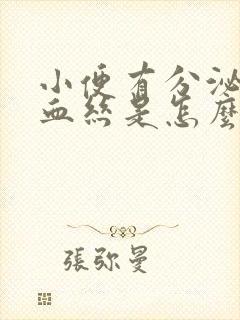 小便有分泌
血絲是怎麼
張弥曼